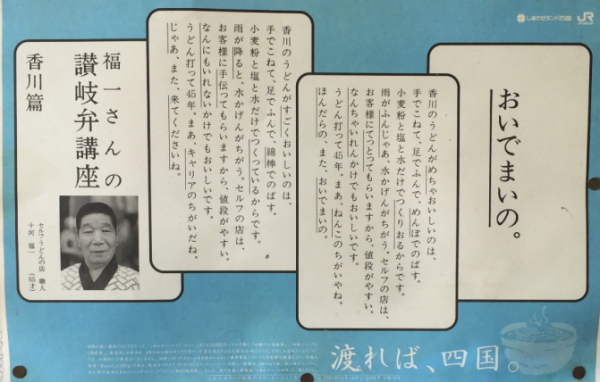 しあわせぐるり四国
JR
おいでまいの。
香川のうどんがめちゃおいしいのは、
手でこねて、足でふんで、めんぼでのばす。
小麦粉と塩と水だけでつくりおるからです。
雨がふんじゃあ、水かげんがちがう。セルフの店は、
お客様にてつとってもらいますから、値段がやすい。
なんちゃいれんかけでもおいしいです。
うどん打って45年。まあ、ねんこのちがいやね。
ほんだらの、また、おいでまいの。
香川のうどんがすごくおいしいのは、
手でこねて、足でふんで、綿棒でのばす。
小麦粉と塩と水だけでつくっているからです。
雨が降ると、水かげんがちがう。セルフの店は、
お客様に手伝ってもらいますから、値段がやすい。
なんにもいれないかけでもおいしいです。
うどん打って45年。まあ、キャリアのちがいだね。
じゃあ、また、来てくださいね。
福一さんの
讃岐弁講座
香川篇
セルフうどんの店 職人
十河 福一 (65才)
渡れば、四国。